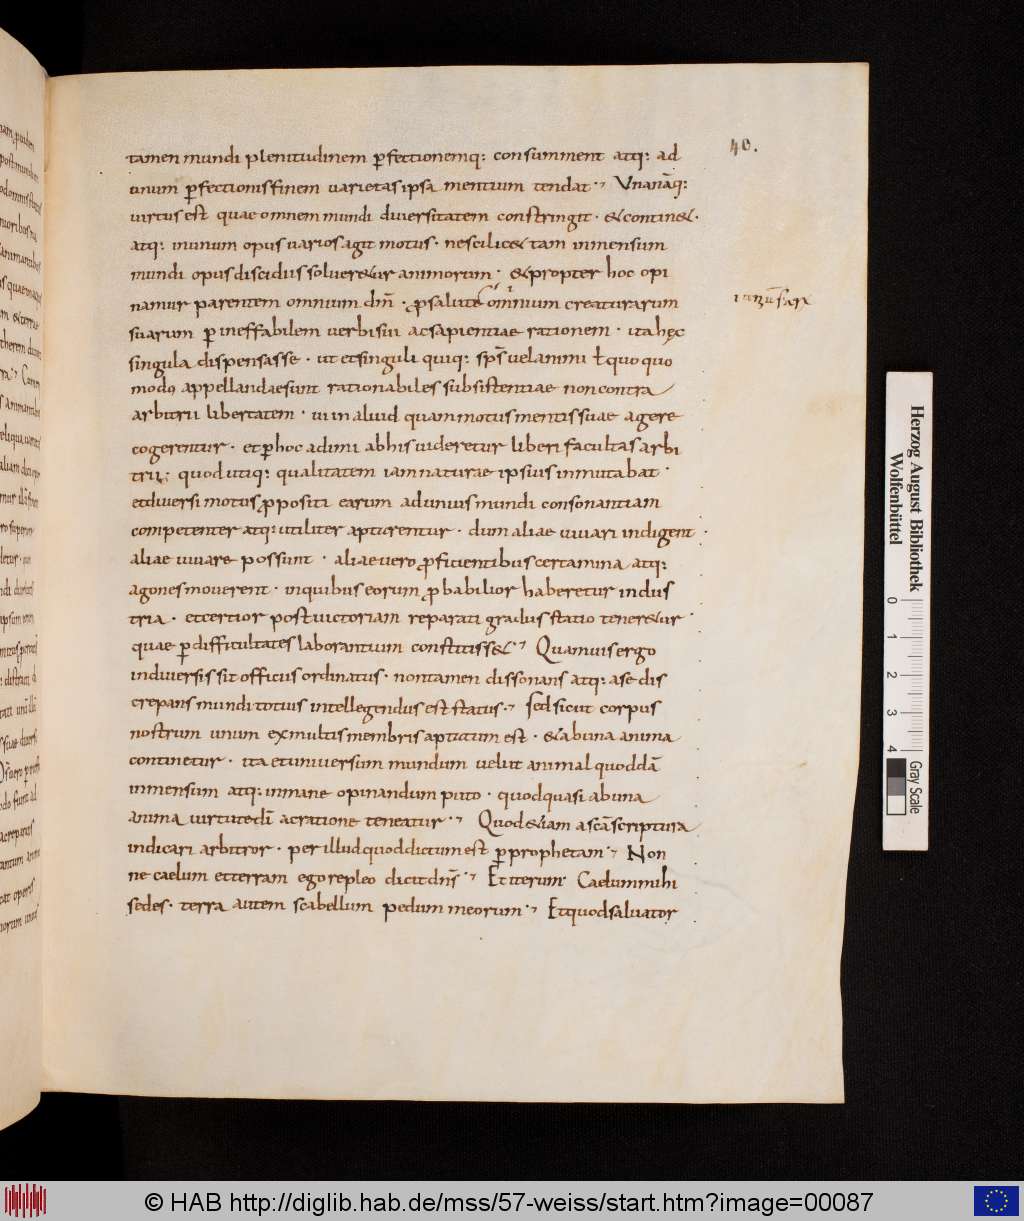 40.
tamen mundi plenitudinem p̄fectionemq: consumment atq: ad
unum p̄fectionis finem varietas ipsa mentium tendat. Una nāq:
virtus est quae omnem mundi diversitatem constringit · & contin& ·
atq: in unum opus varios agit motus · ne scilic& tam inmensum
mundi opus discidiis solver&ur animorum · & propter hoc opi
namur parentem omnium dm̄ · ꝓ salute omnium creaturarum
suarum p̄ ineffabilem verbi sui ac sapientiae rationem · ita hęc
singula dispensasse · ut et singuli quiq: sps̄ vel animi ł quoquo
modo appellandae sunt rationabiles subsistentiae non contra
arbitrii libertatem · vi in aliud quam motus mentis suae agere
cogerentur · et p̄ hoc adimi ab his videretur liberi facultas arbi
trii; quod utiq: qualitatem iam naturae ipsius inmutabat ·
et diversi motus ꝓpositi earum ad unius mundi consonantiam
competenter atq: utiliter aptarentur · dum aliae iuvari indigent ·
aliae iuvare possunt · aliae vero ꝓficientibus certamina atq:
agones moverent · in quibus eorum ꝓbabilior haberetur indus
tria · et certior post victoriam reparati gradus statio tener&ur ·
quae p̄ difficultates laborantium constitiss& · Quamvis ergo
in diversis sit officiis ordinatus · non tamen dissonans atq: a se dis
crepans mundi totius intellegendus est status · Sed sicut corpus
nostrum unum ex multis membris aptatum est · & ab una anima
continetur · ita et universum mundum velut animal quoddā
inmensum atq: inmane opinandum puto · quod quasi ab una
anima virtute dī ac ratione teneatur · Quod &iam a scā scriptura
indicari arbitror · per illud quod dictum est p̄ prophetam · Non
ne caelum et terram ego repleo dicit dn̄s · Et iterum Caelum mihi
sedes · terra autem scabellum pedum meorum · Et quod salvator
Herzog August Bibliothek
Wolfenbüttel
0 1 2 3 4
Gray Scale
© HAB http://diglib.hab.de/mss/57-weiss/start.htm?image=00087